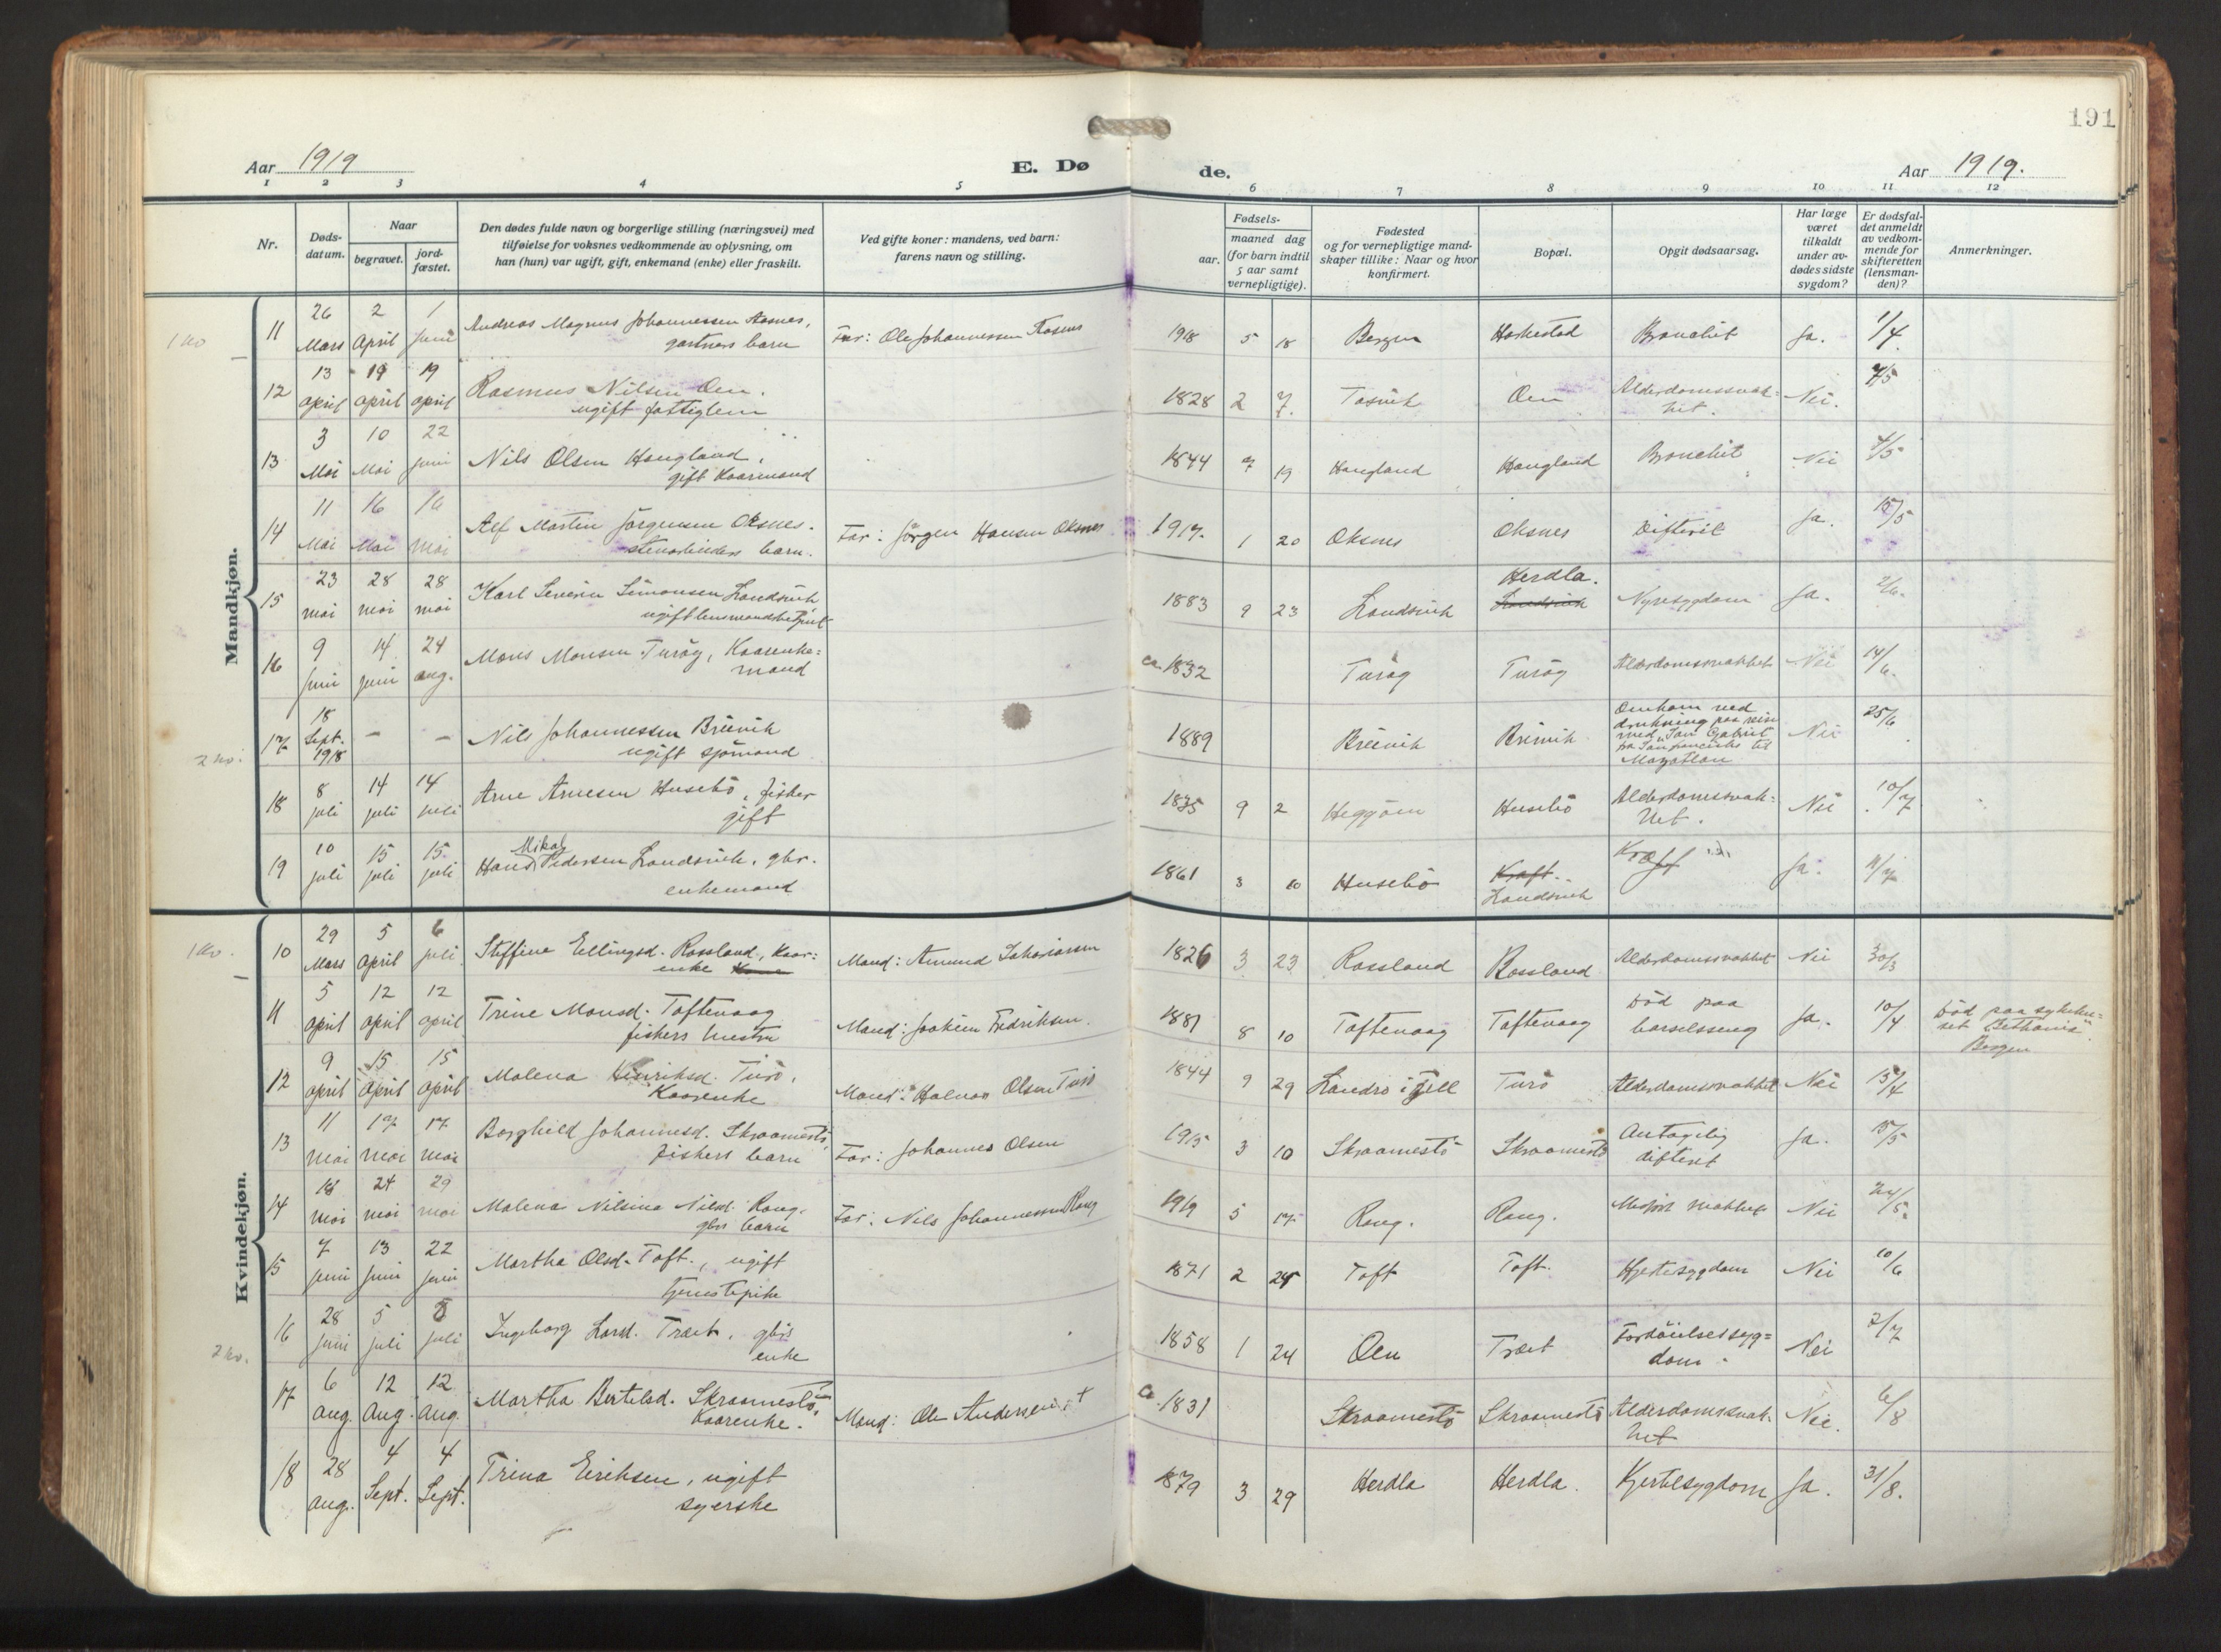 191
Aar 1919 E. Dø de. Aar 1919.
1 2 3 4 5 6 7 8 9 10 11 12
Nr.
Døds-
datum.
Naar
begravet.
jord-
fæstet.
Den dødes fulde navn og borgerlige stilling (næringsvei) med
tilføielse for voksnes vedkommende av oplysning, om
han (hun) var ugift, gift, enkemand (enke) eller fraskilt.
Ved gifte koner: mandens, ved barn:
farens navn og stilling.
Fødsels-
aar.
maaned dag
(for barn indtil
5 aar samt
vernepligtige).
Fødested
og for vernepligtige mand-
skaper tillike: Naar og hvor
konfirmert.
Bopæl.
Opgit dødsaarsag.
Har læge
været
tilkaldt
under av-
dødes sidste
sygdom?
Er dødsfal-
det anmeldt
av vedkom-
mende for
skifteretten
(lensman-
den)?
Anmerkninger.
Mandkjøn.
11 26 Mars 2 April 1 Juni Andreas Magnus Johannessen
gartners barn Far: Ole Johannessen 1918 5 18 Bergen Bronchit Ja. 1/4.
12 13 april 19 april 19 april Rasmus Nilsen Oen.
ugift fattiglem 1828 2 7. Tosvik Oen Alderdomssvak=
het. Nei. 7/5
13 3 Mai 10 Mai 22 Juni Nils Olsen Haugland,
gift Kaarmand 1844 7 19 Haugland Haugland Bronchit Nei 4/5
14 11 Mai 16 Mai 16 mai Alf Martin Jörgensen Oksnes.
barn. Far: Jörgen Hansen Oksnes 1917. 1 20 Oksnes Oksnes Difterit Ja. 15/5
15 23 mai 28 mai 28 mai Karl Severin Simonsen Landsvik
ugift lensmandsbetjent 1883 9 23 Landsvik Herdla.
Landsvik Nyresygdom Ja. 2/6.
16 9 juni 14 juni 24 aug. Mons Monsen Turöy, Kaarenke=
mand ca. 1832 Turöy Turöy Alderdomssvakhet Nei 14/6.
17 18 Sept. 1918 — — Nils Johannessen Breivik
ugift sjömand 1889 Breivik Breivik Omkom ved
drukning paa reise
med "San Gabriel"
til
Mazatlan Nei 25/6
18 8 juli 14 juli 14 juli Arne Arnesen Husebö, fisker
gift 1835 9 2 Heggöen Husebö Alderdomssvak=
het. Nei 10/7
19 10 juli 15 juli 15 juli Hans Mikal Pedersen Landsvik, gbr.
enkemand 1861 3 10 Husebö Kræft.
Landsvik Kræft Ja. 11/7
1 Ko
2 Ko.
Kvindekjøn.
10 29 Mars 5 April 6 juli Steffine Ellingsd. Rossland, Kaar=
enke Kone Mand: Amund Zakariassen 1826 3 23 Rossland Rossland Alderdomssvakhet Nei 30/3
11 5 april 12 april 12 april Trine Monsd. Toftevaag
fiskers hustru Mand: Joakim Fredriksen. 1881 8 10 Toftevaag Toftevaag Död paa
barselsseng Ja. 10/4 Död paa sykehu=
set "Bethania".
Bergen
12 9 april 15 april 15 april Malena Henriksd. Turö,
Kaarenke Mand: Halvor Olsen Turö 1844 9 29 Landro i Fjell Turö Alderdomssvakhet Nei 15/4
13 11 mai 17 mai 17 mai Borghild Johannesd. Skraamestö,
fiskers barn Far: Johannes Olsen 1915 3 10 Skraamestö Skraamestö Antagelig
difterit Ja. 15/5
14 18 mai 24 mai 29 mai Malena Nilsina Nilsd. Rong,
gbrs barn Far: Nils Johannessen Rong 1919 5 17 Rong. Rong. Medfödt svakhet Nei 24/5.
15 7 juni 13 juni 22 juni Martha Olsd. Toft., ugift
tjenestepike 1871 2 25 Toft Toft. Hjertesygdom Nei 10/6
16 28 juni 5 juli 5 juli Ingeborg Larsd. Træet, gbrs
enke 1858 1 24 Oen Træet Fordöielsessyg=
dom. Nei 2/7
17 6 aug. 12 Aug. 12 Aug. Martha Bertelsd. Skraamestö,
Kaarenke. Mand: Ole Andersen † ca. 1831 Skraamestö Skraamestö Alderdomssvak-
het Nei. 6/8
18 28 aug. 4 Sept. 4 Sept. Trina Eriksen, ugift
syerske 1879 3 29 Herdla Herdla. Kjertelsygdom Ja. 31/8.
1 Ko.
2 Ko.